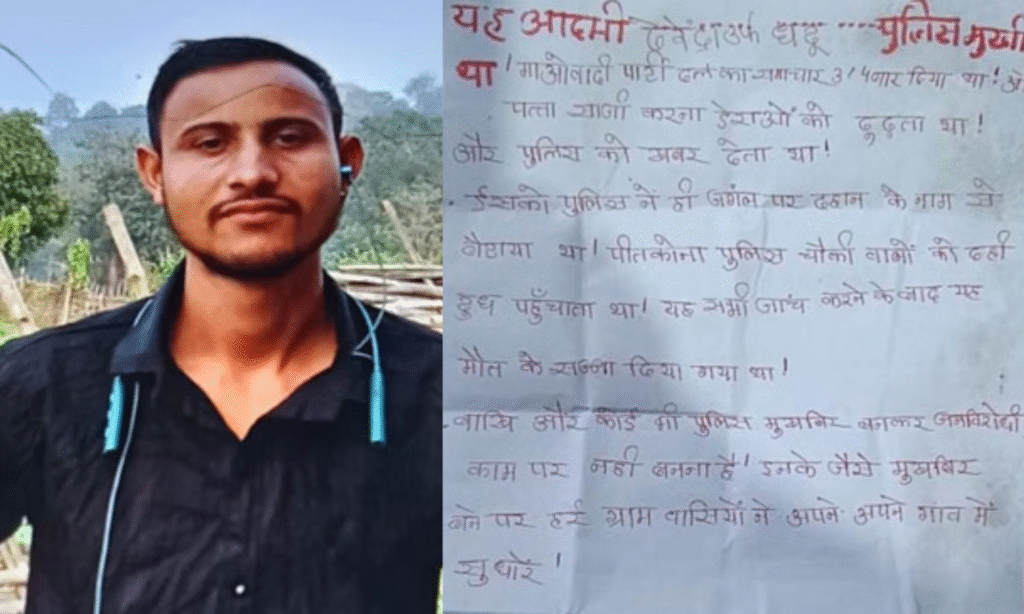 यह आदमी देवेंद्र उर्फ धदू ---- पुलिस मुखबी
था! माओवादी पार्टी दल का समाचार 3/4 बार दिया था!
पत्ता साजी करना डेराओं को ढुढता था!
और पुलिस को खबर देता था!
ईसको पुलिस नें ही जंगल पर दहान के माग से
बैठाया था! पीतकोना पुलिस चौकी वालों को दही
दुध पहुँचाता था! यह सभी जांच करने के बाद यह
मौत के सज्जा दिया गया था!
वाखि और कोई भी पुलिस मुखबिर बनकर जनविरोधी
काम पर नहीं बनना है! इनके जैसे मुखबिर
बने पर हर्र ग्राम वासियों ने अपने अपने गांव में
सुधारें!